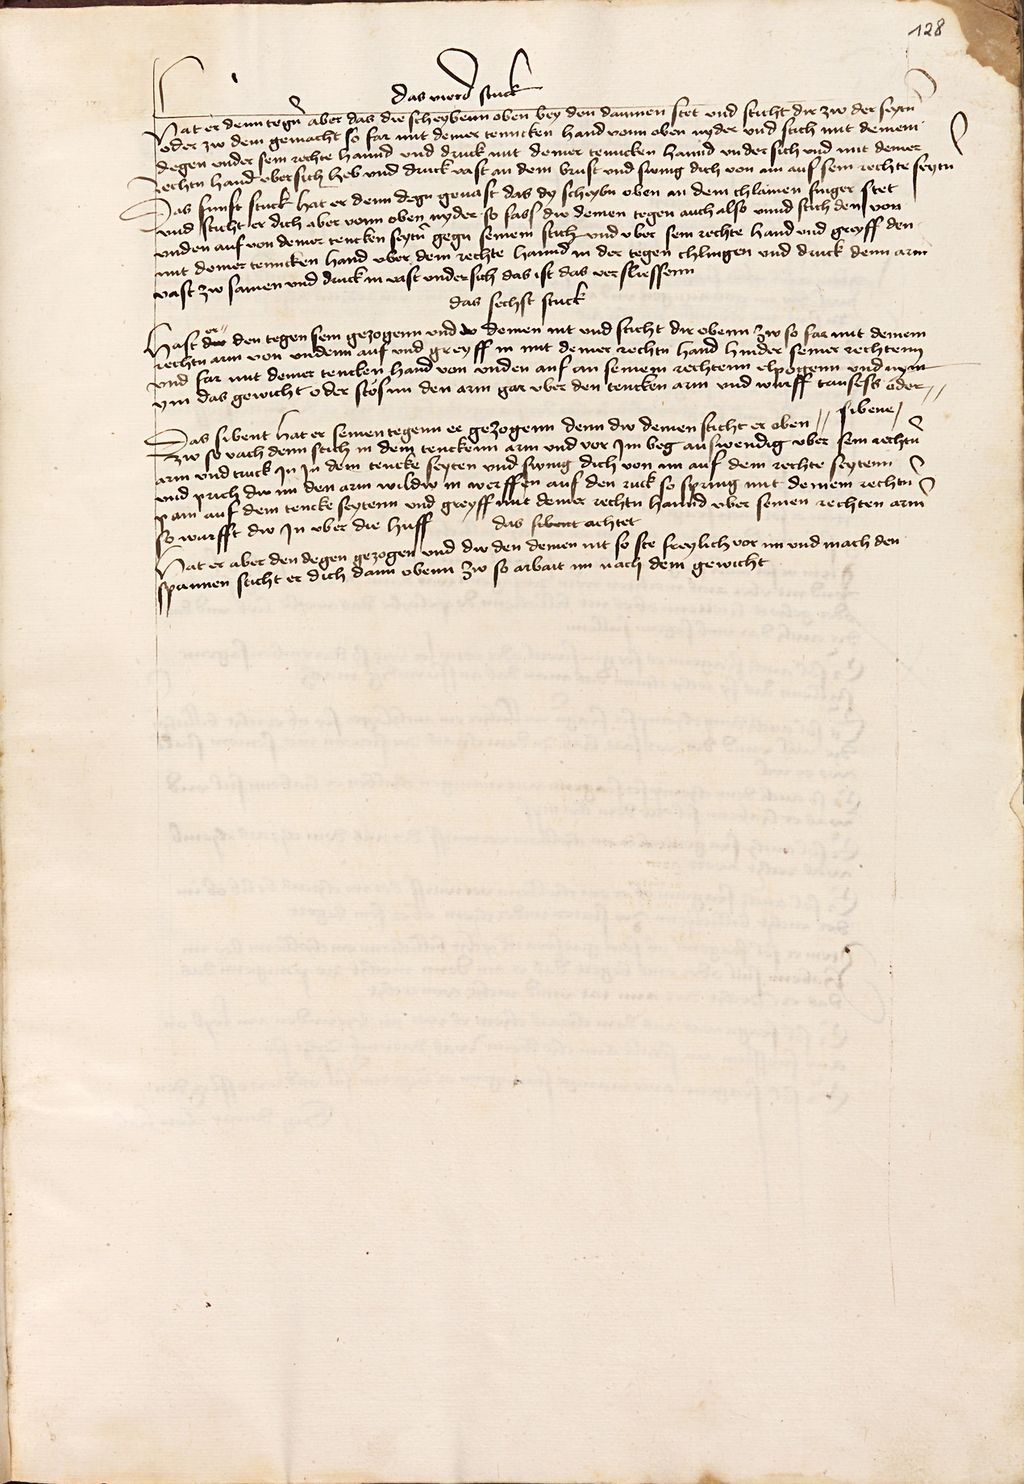 128
das vierd stuck
Hat er denn tegn̄ aber das die scheybenn oben bey den daumen stet und sticht dir zw der seyten
oder zw dem gemacht so far mit deiner tenncken hand vonn oben nyder und stich mit deinem
degen under sein rechte hannd und druck mit deiner tenncken hannd under sich und mit deiner
rechtn hand ubersich heb und druck vast an dein brust und swing dich von im auf sein rechte seytn
Das funft stuck hat er denn degn gevast das dy scheybn oben an dem chlainen finger stet
und sticht er dich aber vonn oben nyder so fass dw deinen tegen auch also unnd stich den von
unden auf von deiner tencken seytn̄ gegn seinem stich und uber sein rechte hand und greyff den
mit deiner tenncken hand uber dein rechte hannd in der tegen chlingen und druck denn arm
vast zw samen und druck in vast undersich das ist das verschliessenn
das sechst stuck
Hast er den tegen sein gezogenn und dw deinen nit und sticht dir obenn zw so far mit deinem
rechtn arm von undenn auf und greyff in mit deiner rechtn hand hinder seiner rechtenn
und far mit deiner tencken hand von unden auf an seinem rechtenn elpogenn und nym
ym das gewicht oder stös im den arm gar uber den tencken arm und wurff in aus fuss oder
sibene
Das sibent hat er seinen tegenn ee gezogenn denn dw deinen sticht er oben
zw so vach denn stich in dein tenckenn arm und vor im beg auswendig uber sein rechtn̄
arm und truck in in dein tencke seyten und swing dich von im auf dein rechte seytenn
und prich dw im den arm wildw in werffen auf den ruck so spring mit deinem rechtn
pain auf dein tencke seytenn und greyff mit deiner rechtn hannd uber seinen rechten arm
so wurfft dw in uber die huff
das sibent achtet
Hat er aber den degen gezogen und dw den deinen nit so ste freylich vor im und mach den
spannen sticht er dich dann obenn zw so arbait im nach dem gewicht